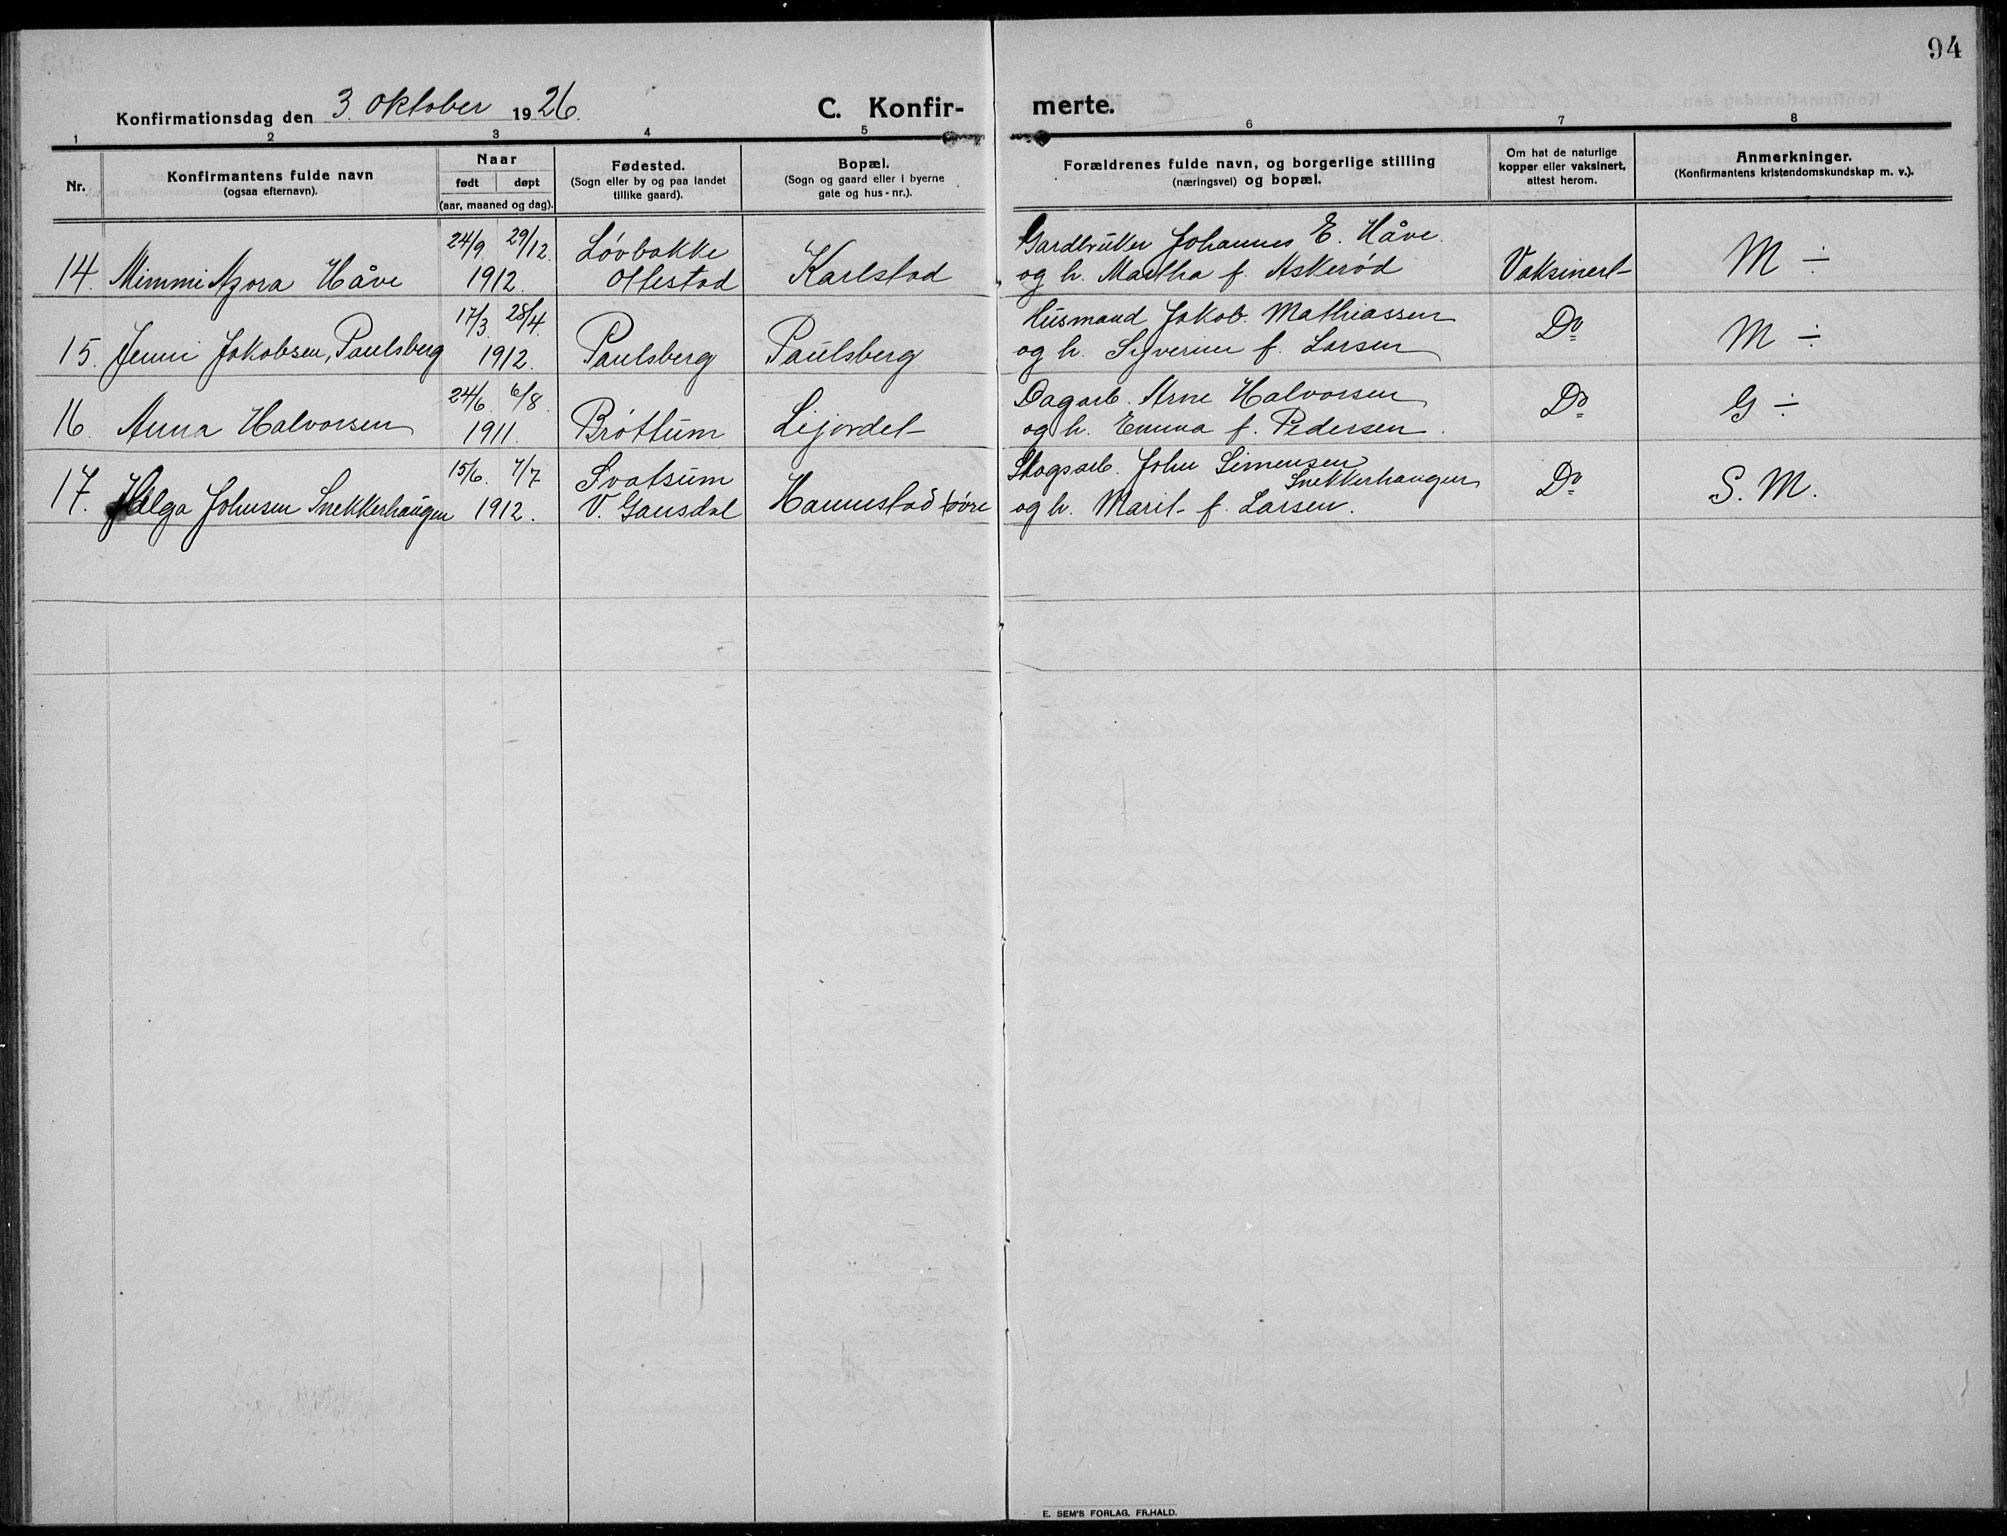 94
Konfirmationsdag den 3. oktober 1926.
C. Konfirmerte.
1 2 3 4 5 6 7 8
Nr.
Konfirmantens fulde navn
(ogsaa efternavn).
Naar
født døpt
(aar, maaned og dag).
Fødested.
(Sogn eller by og paa landet
tillike gaard).
Bopæl.
(Sogn og gaard eller i byerne
gate og hus-nr.).
Forældrenes fulde navn, og borgerlige stilling
(næringsvei) og bopæl.
Om hat de naturlige
kopper eller vaksinert,
attest herom.
Anmerkninger.
(Konfirmantens kristendomskundskap m. v.).
24/9 29/12 Løvbakke Gardbruker Johannes E. Håve.
14. Mimmi Azora Håve 1912. Ottestad Karlstad og h. Martha f. Askerød Vaksinert M ÷
17/3 28/4 Husmand Jakob. Mathiassen
15. Jenni Jakobsen, Paulsberg 1912. Paulsberg Paulsberg og h. Syverine f. Larsen Do M ÷
24/6. 6/8. Dagarb. Arne Halvorsen
16. Anna Halvorsen 1911. Brøttum Lijordet og h. Emma f. Pedersen. Do G ÷
15/6. 7/7. Svatsum Skogsarb. John Simensen
Snekkerhaugen
17. Helga Johnsen Snekkerhaugen 1912. V. Gausdal Hannestad øvre og h. Marit f. Larsen. Do S. M.
E. SEM'S FORLAG, FR.HALD.